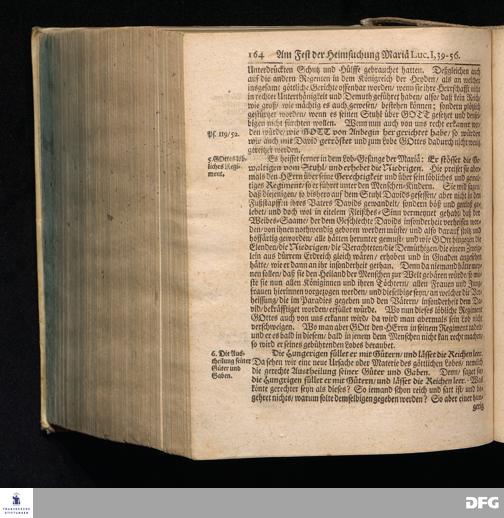 164 Am Fest der Heimsuchung Mariä Luc. I, 39-56.
Unterdrückten Schutz und Hülffe gebrauchet hatten. Deßgleichen auch
auf die andern Regenten in dem Königreich der Heyden/ als an welchen
insgesamt göttliche Gerichte offenbar worden/ wenn sie ihre Herrschafft nicht
in rechter Unterthänigkeit und Demuth geführet haben/ also/ daß kein Reich/
wie groß/ wie mächtig es auch gewesen/ bestehen können; sondern plötzlich
gestürtzet worden/ wenn es seinen Stuhl über GOTT gesetzet und densel-
bigen nicht fürchten wollen. Wenn nun auch von uns recht erkannt wer-
Ps. 119/52.
den würde/ wie GOTT von Anbegin her gerichtet habe/ so würden
wir auch mit David getröstet und zum Lobe GOttes dadurch nicht wenig
gereitzet werden.
5. GOttes löb-
liches Regi-
ment,
Es heisset ferner in dem Lob-Gesange der Mariä: Er stösset die Ge-
waltigen vom Stuhl/ und erhebet die Niedrigen. Hie preiset sie aber-
mals den HErrn über seine Gerechtigkeit und über sein löbliches und gerech-
tiges Regiment/ so er führet unter den Menschen-Kindern. Sie will sagen/
daß diejenigen/ so bishero auf dem Stuhl Davids gesessen/ aber nicht in den
Fußstapffen ihres Vaters Davids gewandelt/ sondern böß und gottlos ge-
lebet/ und doch wol in eitelem Fleisches-Sinn vermeynet gehabt/ daß der
Weibes-Saame/ der dem Geschlechte Davids insonderheit verheissen wor-
den/ von ihnen nothwendig geboren werden müste/ und also darauf stoltz und
hoffärtig geworden/ alle hätten herunter gemust; und wie GOtt hingegen die
Elenden/ die Niedrigen/ die Verachteten/ die Demüthigen/ die einem Zweig-
lein aus dürrem Erdreich gleich wären/ erhoben und in Gnaden angesehen
hätte/ wie er dann an ihr insonderheit gethan. Denn da niemand hätte mey-
nen sollen/ daß sie den Heiland der Menschen zur Welt gebären würde/ so mu-
ste sie nun allen Königinnen und ihren Töchtern/ aller Frauen und Jung-
frauen hierinnen vorgezogen werden/ und dieselbige seyn/ an welcher die Ver-
heissung/ die im Paradies gegeben und den Vätern/ insonderheit dem Da-
vid/ bekräfftiget worden/ erfüllet würde. Wo nun dieses löbliche Regiment
GOttes auch von uns erkannt wird/ da wird man abermals sein Lob nicht
verschweigen. Wo man aber GOtt den HErrn in seinem Regiment tadelt/
und er es bald in diesem/ bald in jenem dem Menschen nicht kan recht machen/
so wird er seines gebührenden Lobes beraubet.
6. Die Aus-
theilung seiner
Güter und
Gaben.
Die Hungerigen füllet er mit Gütern/ und lässet die Reichen leer.
Da sehen wir eine neue Ursache oder Materie des göttlichen Lobes/ nemlich
die gerechte Austheilung seiner Güter und Gaben. Denn/ saget sie/
die Hungrigen füllet er mit Gütern/ und lässet die Reichen leer. Was
könte gerechter seyn als dieses? So iemand schon reich und satt ist/ und be-
gehret nichts/ warum solte demselbigen gegeben werden? So aber einer hun-
gerig
FRANCKESCHE
STIFTUNGEN
DFG